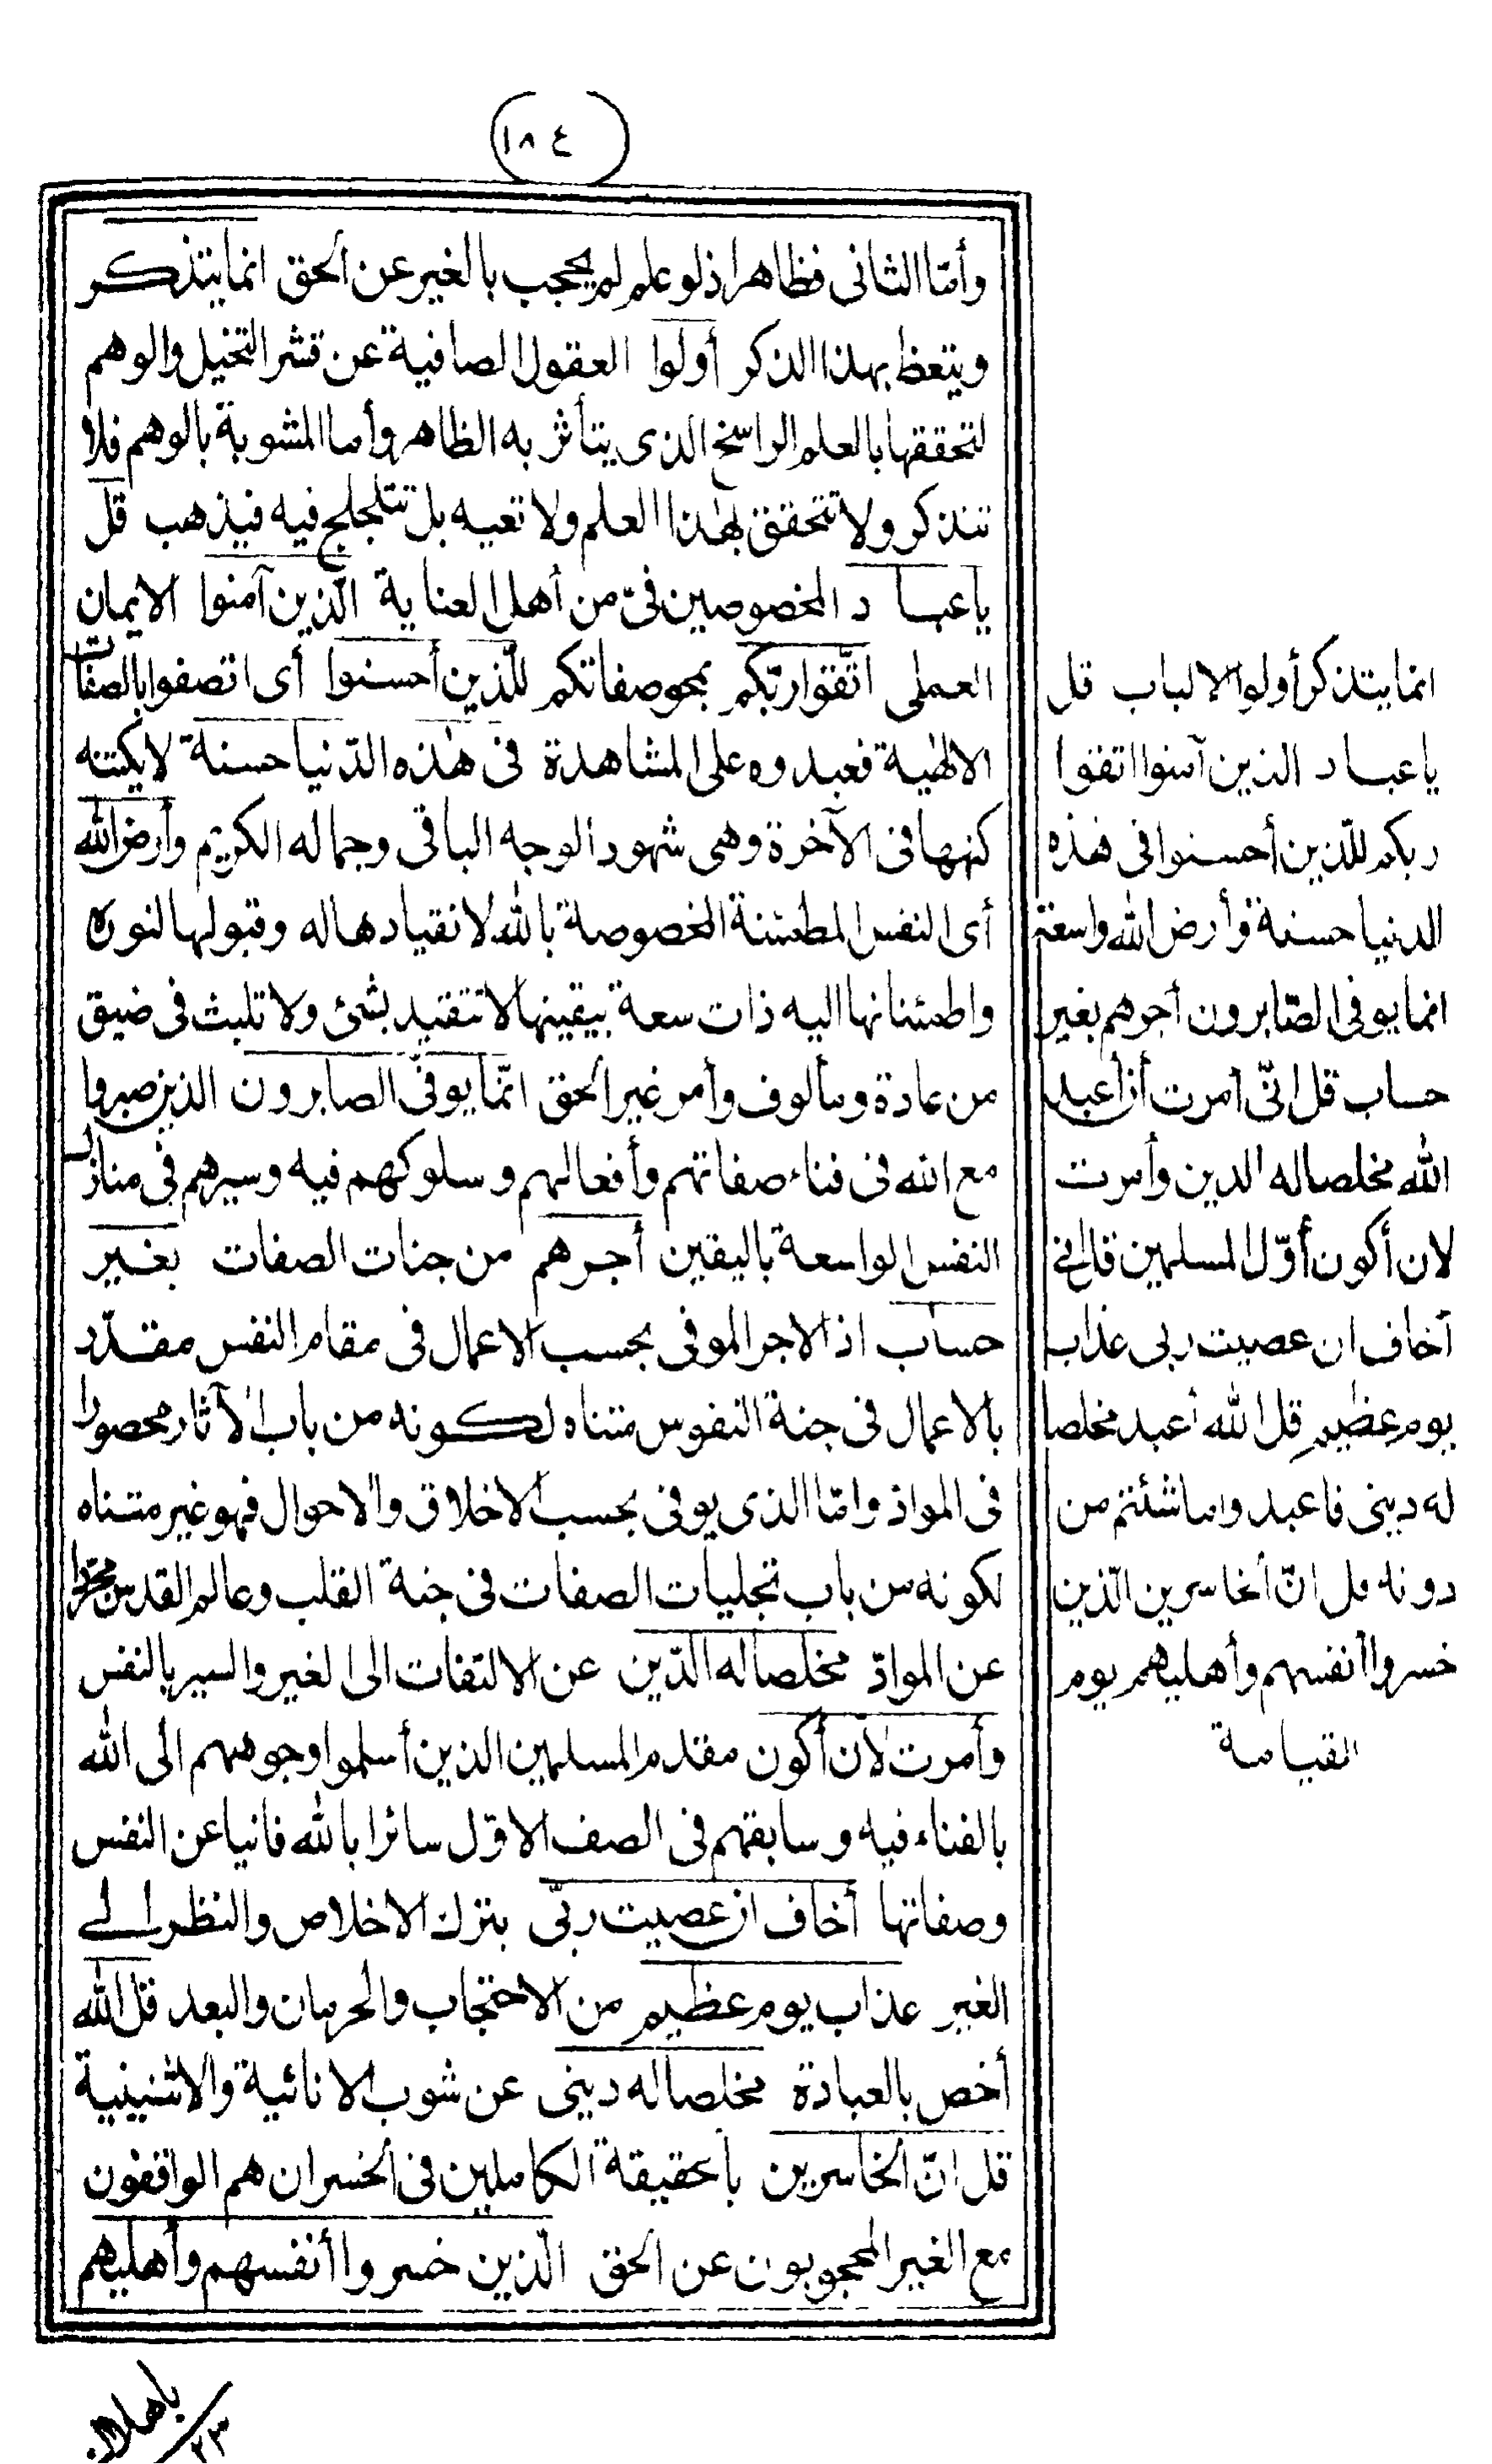 (١٨٤)
وأمّا الثانى فظاهر اذ لو علم لم يحجب بالغير عن الحق انما يتذكر
ويتعظ بهذا الذكر أولوا العقول الصافية عن قشر التخيل والوهم
لتحققها بالعلم الراسخ الذى يتأثر به الظاهر وأما المشوبة بالوهم فلا
تتذكر ولا تتحقق بهذا العلم ولا تعيه بل تتلجلج فيه فيذهب قل
يا عباد المخصوصين فىّ من أهل العناية الّذين آمنوا الايمان
العملى اتّقوا ربّكم بمحو صفاتكم للّذين أحسنوا أى اتصفوا بالصفات
الالٰهية فعبدوه على المشاهدة فى هٰذه الدّنيا حسنة لا يكتنه
كنهها فى الآخرة وهى شهود الوجه الباقى وجماله الكريم وأرض الله
أى النفس المطمئنة المخصوصة بالله لانقيادها له وقبولها لنوره
واطمئنانها اليه ذات سعة بيقينها لا تتقيد بشئ ولا تلبث فى ضيق
من عادة ومألوف وأمر غير الحق انّما يوفّى الصابرون الذين صبروا
مع الله فى فناء صفاتهم وأفعالهم وسلوكهم فيه وسيرهم فى منازل
النفس الواسعة باليقين أجرهم من جنات الصفات بغير
حساب اذ الاجر الموفى بحسب الاعمال فى مقام النفس مقدّر
بالاعمال فى جنة النفوس متناه لكونه من باب الآثار محصورا
فى المواد وامّا الذى يوفى بحسب الاخلاق والاحوال فهو غير متناه
لكونه من باب تجليات الصفات فى جنة القلب وعالم القدس مجرّدا
عن الموادّ مخلصا له الدّين عن الالتفات الى الغير والسير بالنفس
وأمرت لأن أكون مقدم المسلمين الذين أسلموا وجوههم الى الله
بالفناء فيه وسابقهم فى الصف الاوّل سائرا بالله فانيا عن النفس
وصفاتها أخاف ان عصيت ربّى بترك الاخلاص والنظر الى
الغير عذاب يوم عظيم من الاحتجاب والحرمان والبعد قل الله
أخص بالعبادة مخلصا له دينى عن شوب الانائية والاثنينية
قل انّ الخاسرين بالحقيقة الكاملين فى الخسران هم الواقفون
مع الغير المحجوبون عن الحق الّذين خسروا أنفسهم وأهليهم
انما يتذكر أولوا الالباب قل
يا عباد الذين آمنوا اتقوا
ربكم للّذين أحسنوا فى هذه
الدنيا حسنة وأرض الله واسعة
انما يوفى الصّابرون أجرهم بغير
حساب قل انّى أمرت أن أعبد
الله مخلصا له الدين وأمرت
لان أكون أوّل المسلمين قل انى
أخاف ان عصيت ربى عذاب
يوم عظيم قل الله أعبد مخلصا
له دينى فاعبدوا ما شئتم من
دونه قل انّ الخاسرين الّذين
خسروا أنفسهم وأهليهم يوم
القيامة
٢٣